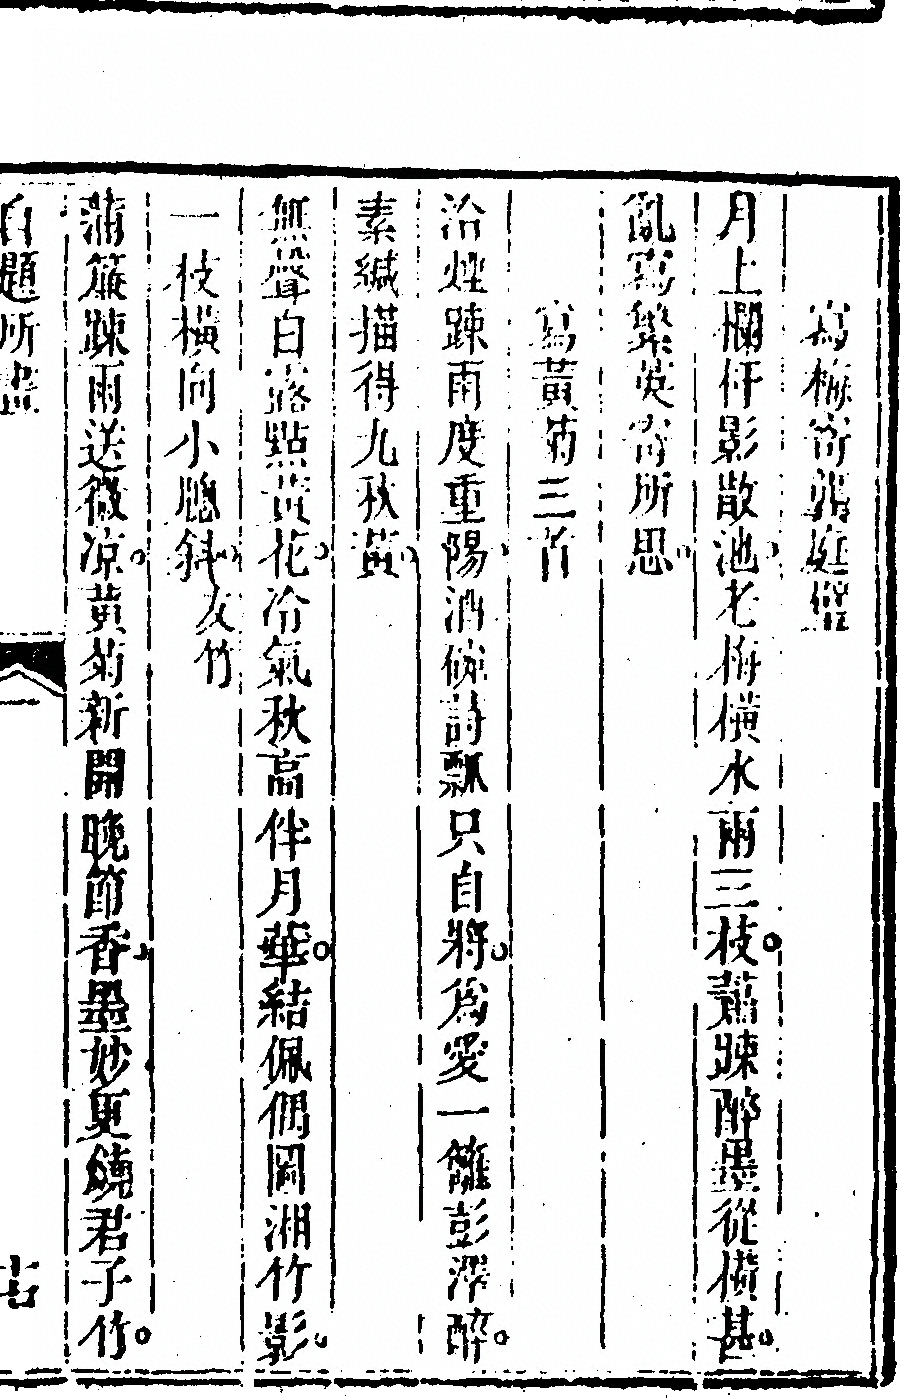 寫梅寄郭庭璧
月上欄杆影散池老梅橫水兩三枝蕭踈醉墨從橫甚
亂寫繁英寄所思
寫黃菊三首
冶煙踈雨度重陽酒傾詩瓢只自將為愛一籬彭澤醉
素縑描得九秋黃
無聲白露點黃花冷氣秋高伴月華結佩偶圖湘竹影
一枝橫向小牕斜友竹
蒲簾踈雨送微凉黃菊新開晚節香墨妙更饒君子竹
自題所畫
七